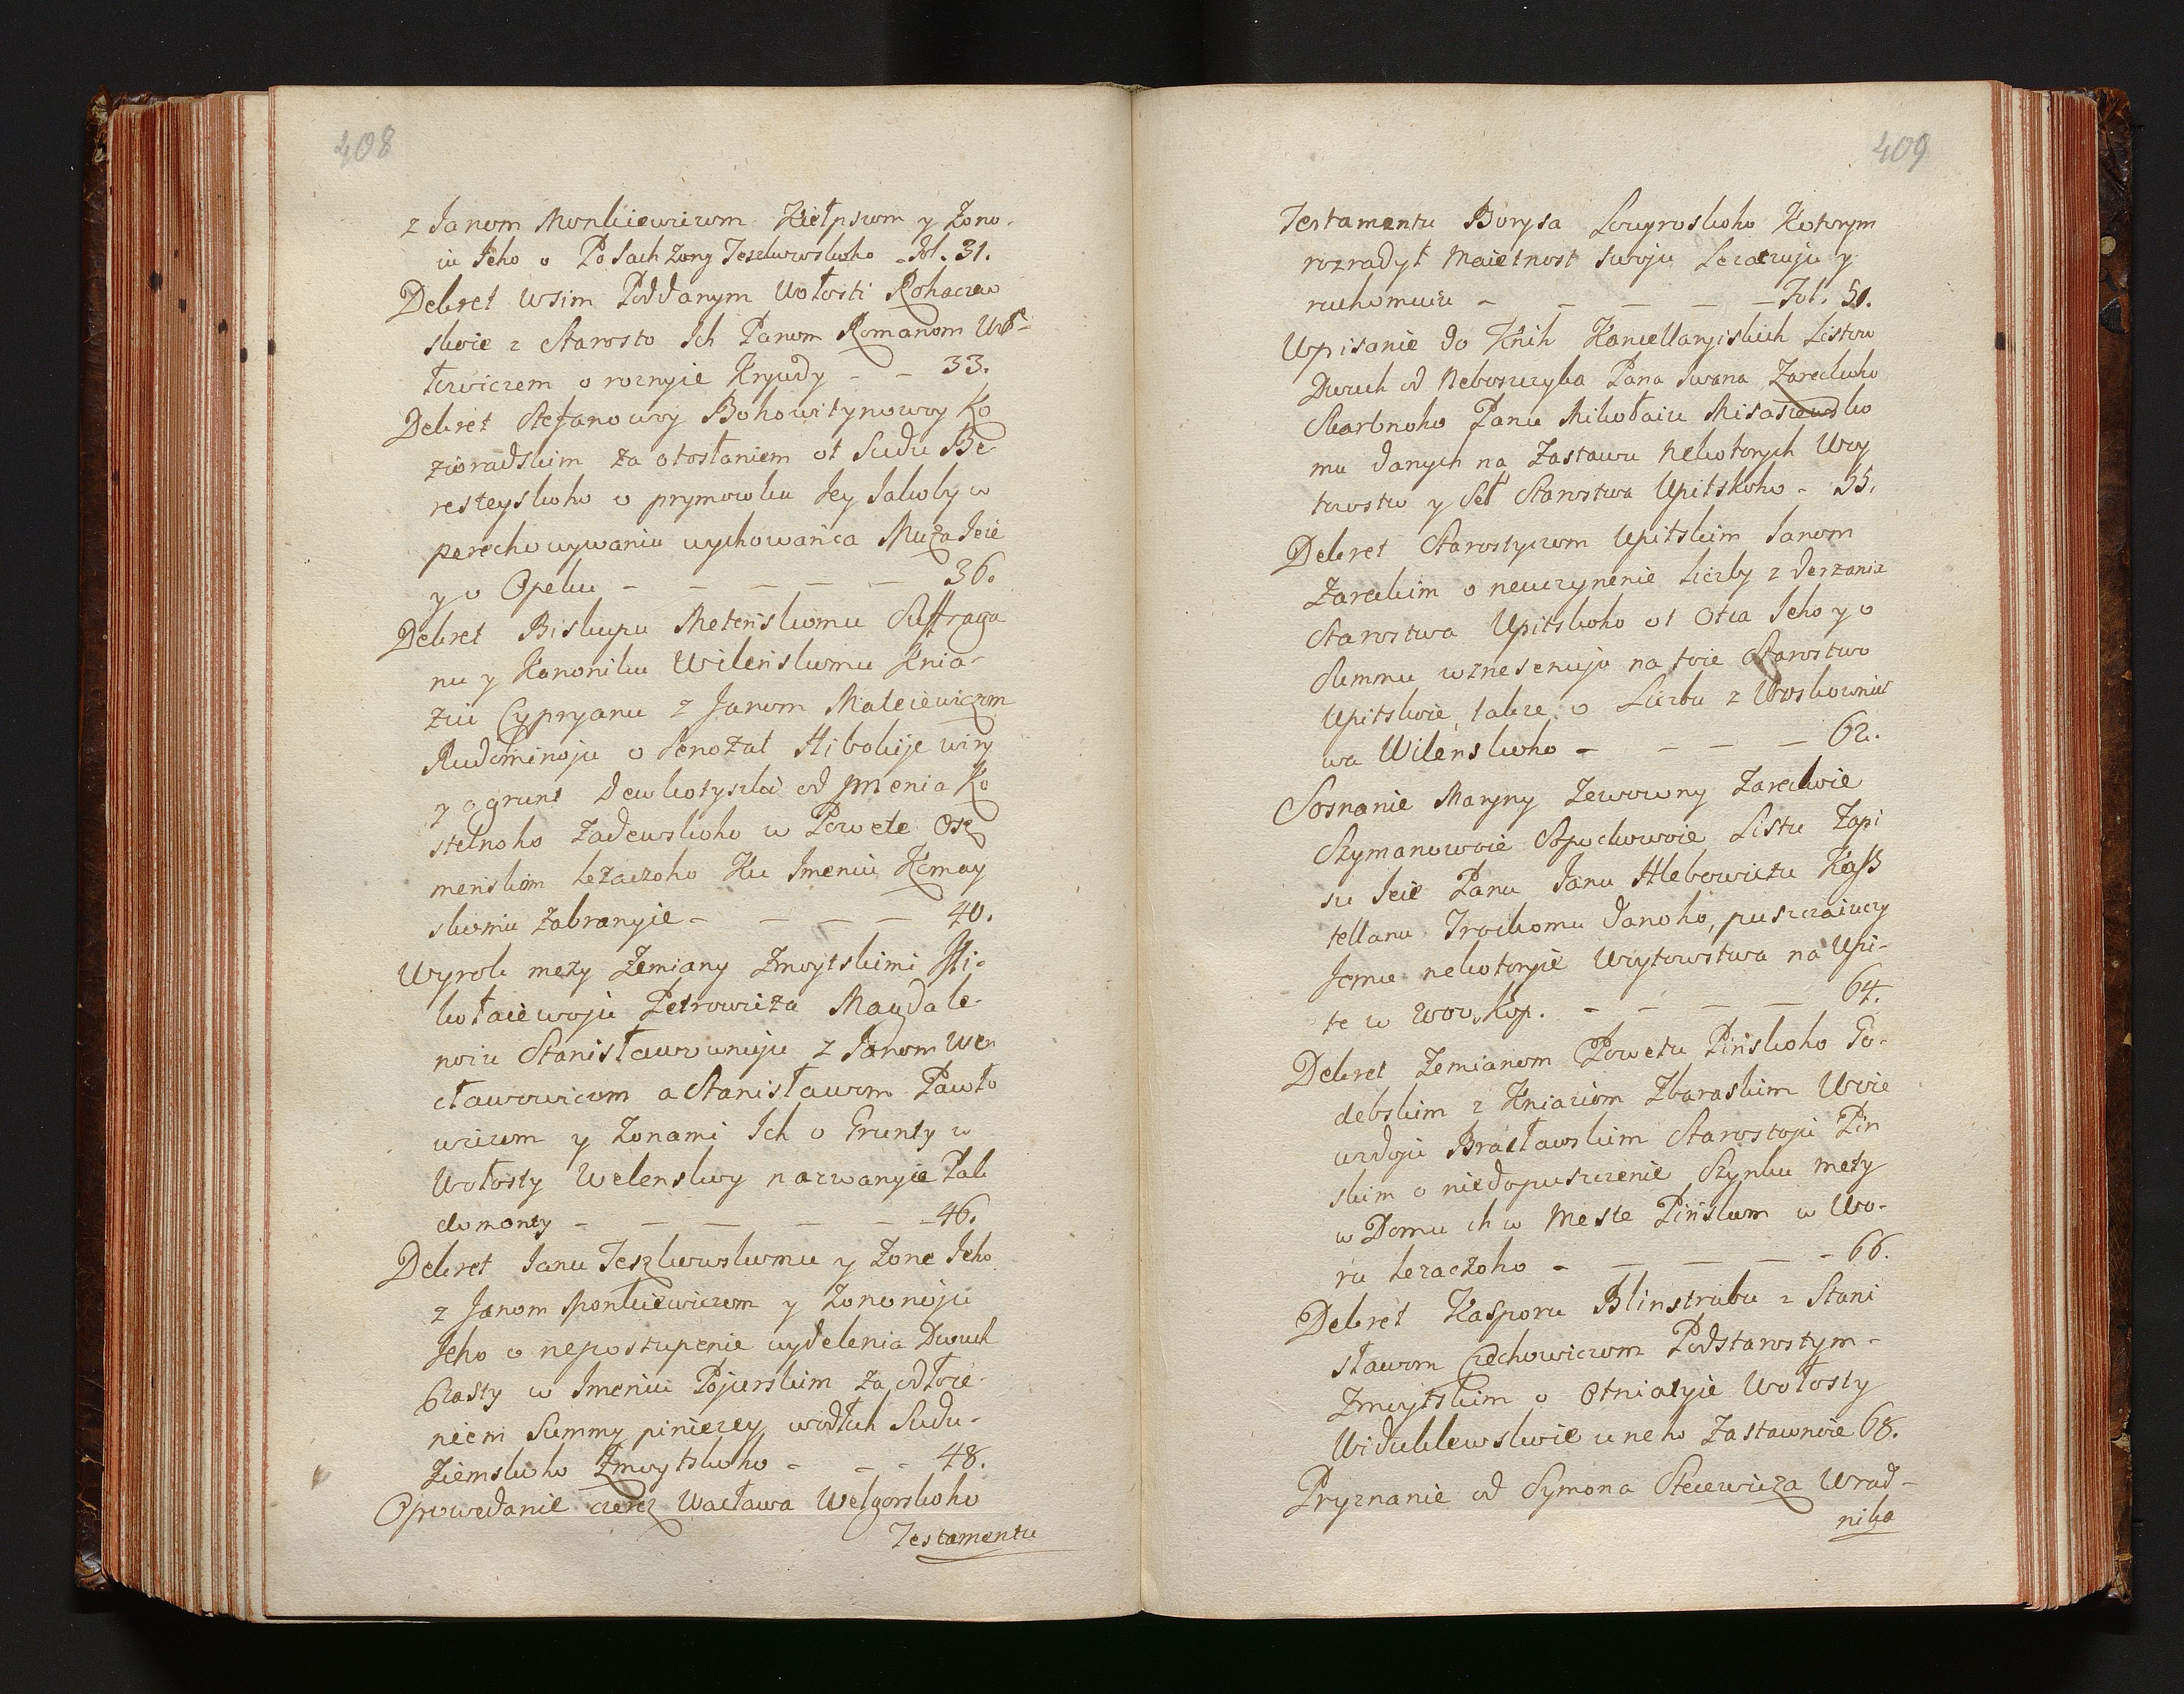 408
z Janom Monkiewiczom Kiełpszom y Zono-
iu Jeho o Posach Zony Jeszkowskoho - Fol. 31.
Dekret Wsim Poddanym Wołosti Rohaczew
skoie z Starosto Ich Panom Romanom Woł-
łowiczem o roznyie Krywdy - - 33.
Dekret Stefanowoy Bohowitynowoy Ko
zieradskim za otosłaniem ot Sudu Be
resteyskoho o prymowku Jey Jakoby w
perechowywaniu wychowańca Muża Jeie
y o Opeku - - - - - 36.
Dekret Biskupu Metenskomu Suffraga
nu y Kanoniku Wilenskomu Knia-
ziu Cypryanu z Janom Mateiewiczom
Rudominoju o Senożat Hibokije winy
y o grunt Dewkotyszki od Jmenia Ko
stelnoho Zadewskoho w Powete Osz
menskom leżaczoho Ku Imeniu Komay
skomu zabranyie - - - - 40.
Wyrok mezy Zemiany Zmoytskimi Mi-
kołaiewoju Petrowicza Magdale-
noiu Stanisławownuju z Janom Wen
cławowiczom a Stanisławom Pawło
wiczom y Zonami Ich o Grunty w
Wołosty Welenskoy nazwanyie Pak
domonty - - - - - - 46.
Dekret Janu Jeszkowskomu y Zone Jeho
z Janom Monkiewiczom y Zononoju
Jeho o nepostupenie wydelenia Dwuch
Czasty w Imeniu Pojurskim za odłoże-
niem Summy pinięzey wodłuh Sudu-
Ziemskoho Zmoytskoho - - - 48.
Opowedanie czerez Wacława Welgorskoho
Testamentu
409
Testamentu Borysa Kotorym
rozradył Maietnost Swoju Leżaczuju y
ruchomuiu - - - - - Fol. 51.
Wpisanie do Knih Kancellaryiskich Listow
Dwuch od Neboszczyka Pana Iwana Zareckoho
Skarbnoho Panu Mikołaiu Misaszewsko
mu danych na Zastawu Nekotorych Woy
towstw y Seł Starostwa Upitskoho - 55.
Dekret Starostyczom Upitskim Janom
Zareckim o neuczynenie Liczby z derzania
Starostwa Upitskoho ot Otca Jeho y o
Summu wznesenuju na toie Starostwo
Upitskoie, takze o Liczbu z Woskownic
wa Wilenskoho - - - - 62.
Soznanie Maryny Zewowny Zareckoie
Szymanowoie Szpockowoie Listu Zapi
su Jeie Panu Janu Hlebowiczu Kasz
tellanu Trockomu danoho, puszczaiuczy
Jomu nekotoryie Woytowstwa na Upi-
te w 2000. Kop. - - - - 64.
Dekret Zemianom Powetu Pinskoho Go-
debskim z Kniaziom Zbaraskim Woie
wodoju Bracławskim Starostoju Pin
skim o niedopuszczenie Szynku mety
w Domu ich w Meste Pinskom w Wo-
ru leżaczoho - - - - - 66.
Dekret Kasporu Blinstrubu z Stani
sławom Czechowiczom Podstarostym-
Zmoytskim o Otniatyie Wołosty
Widuklewskoie u neho Zastawnoie 68.
Pryznanie od Symona Steciewicza Wrad-
nika